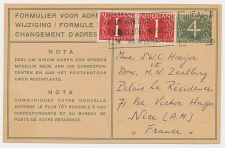 FORMULIER VOOR ADRES
WIJZIGING / FORMULE
CHANGEMENT D'ADRES
4
NOTA
DEEL UW NIEUWE ADRES ZOO SPOEDIG
MOGELIJK MEDE AAN UW CORRESPONDEN-
TEN EN AAN HET POSTKANTOOR
UWER WOONPLAATS.
NOTA
COMMUNIQUEZ VOTRE NOUVELLE
ADRESSE LE PLUS TÔT POSSIBLE À VOS
CORRESPONDANTS ET AU BUREAU DE
POSTE DE VOTRE RÉSIDENCE.
Mme S.W.C. Hooyer
Palais La Résidence
71 Bd. Victor Hugo
Nice (A.M.)
France